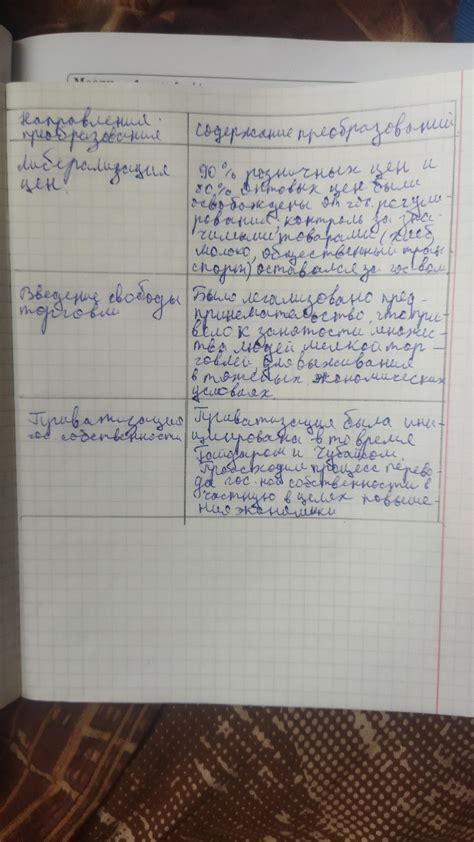 Направления преобразования
Содержание преобразований
Либерализация
цен
90% розничных цен и
80% оптовых цен были
освобождены от гос. регули-
рования контроль за
товарами (хлеб
молоко, общественный тран-
спорт) оставался за гос-вом
Введение свободы
торговли
Было легализовано пред-
принимательство, что при-
вело к занятости множес-
тва людей мелкой тор-
говлей для выживания
в тяжёлых экономических
условиях.
Приватизация
гос. собственности
Приватизация была ини-
циирована в то время
Гайдаром и Чубайсом.
Происходил процесс перево-
да гос-ной собственности в
частную в целях повыше-
ния экономики